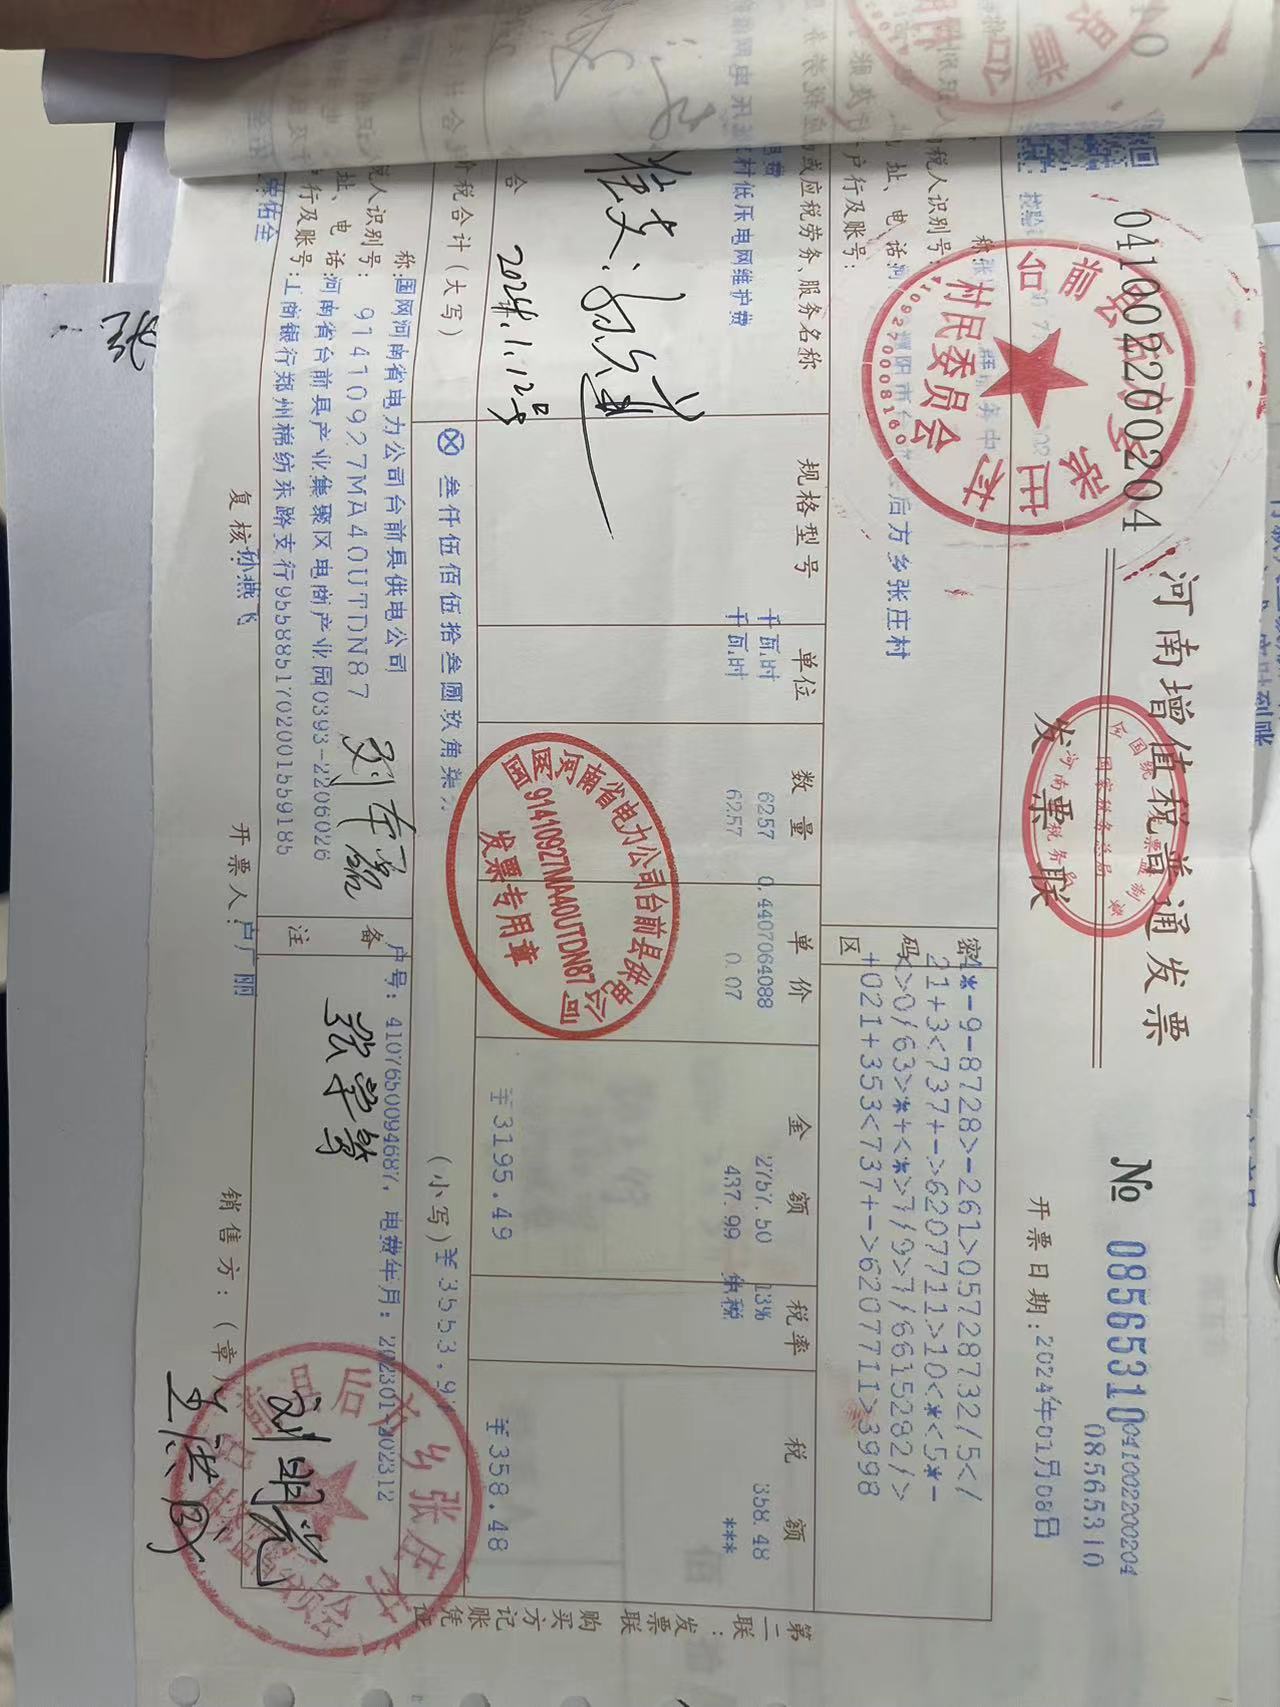 041002200204
河南增值税普通发票
发票联
№ 08565310
041002200204
08565310
开票日期:2024年01月08日
全国统一发票监制章
国家税务总局
河南省税务局
台前县后方乡张庄村
村民委员会
4109270008160
税人识别号:
址、电话:
后方乡张庄村
户行及账号:
密码区
*-9-8728>-261>05728732/5</
21+3<737+->6207711>10<*<5*-
>0/63>*+<*>7/9>7/6615282/>
+021+353<737+->6207711>3998
或应税劳务、服务名称
规格型号
单位
数量
单价
金额
税率
税额
千瓦时
6257
0.4407064088
2757.50
13%
358.48
村低压电网维护费
千瓦时
6257
0.07
437.99
免税
***
合
¥3195.49
¥358.48
价税合计(大写)
⊗叁仟伍佰伍拾叁圆玖角柒
(小写)¥3553.97
2024.1.12号
称:国网河南省电力公司台前县供电公司
税人识别号:91410927MA40UTDN87
址、电话:河南省台前县产业集聚区电商产业园0393-2206026
行及账号:工商银行郑州棉纺东路支行9558851702001559185
备注
户号:4107650094687,电费年月:202301-202312
国网河南省电力公司台前县供电公司
91410927MA40UTDN87
发票专用章
张学等
刘明光
复核:孙燕飞
开票人:卢广丽
销售方:(章)
第二联:发票联 购买方记账凭证